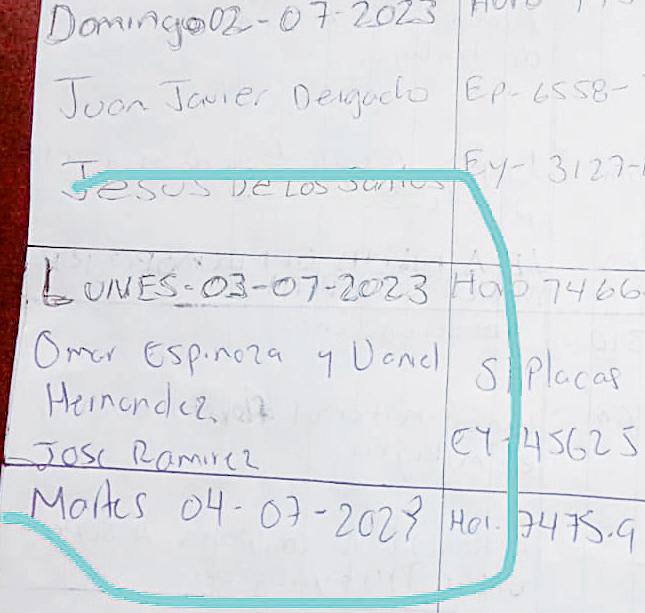 Domingo 02-07-2023
Juan Javier Delgado EP-6558-
Jesus De Los Santos EY- 3127-
LUNES-03-07-2023 Horo 7466
Omar Espinoza y Daniel S/Placas
Hernandez
Jose Ramirez EY-45625
Martes 04-07-2023 Hor. 7475.9